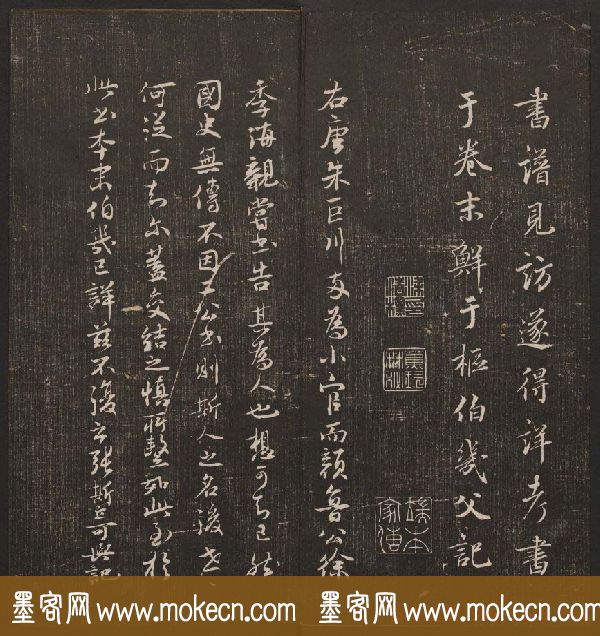 書譜見訪遂得詳考書
于卷末鮮于樞伯幾父記
右唐朱巨川両為小官而顏魯公徐
季海親嘗書告其為人也想可知已然
國史無傳不因二公書則斯人之名後世
何從而知尓蓋交結之慎所繫如此至於
此書本末伯幾已詳茲不復云張斯立可與記
墨客网 www.mokecn.com 墨客网 www.mokecn.com